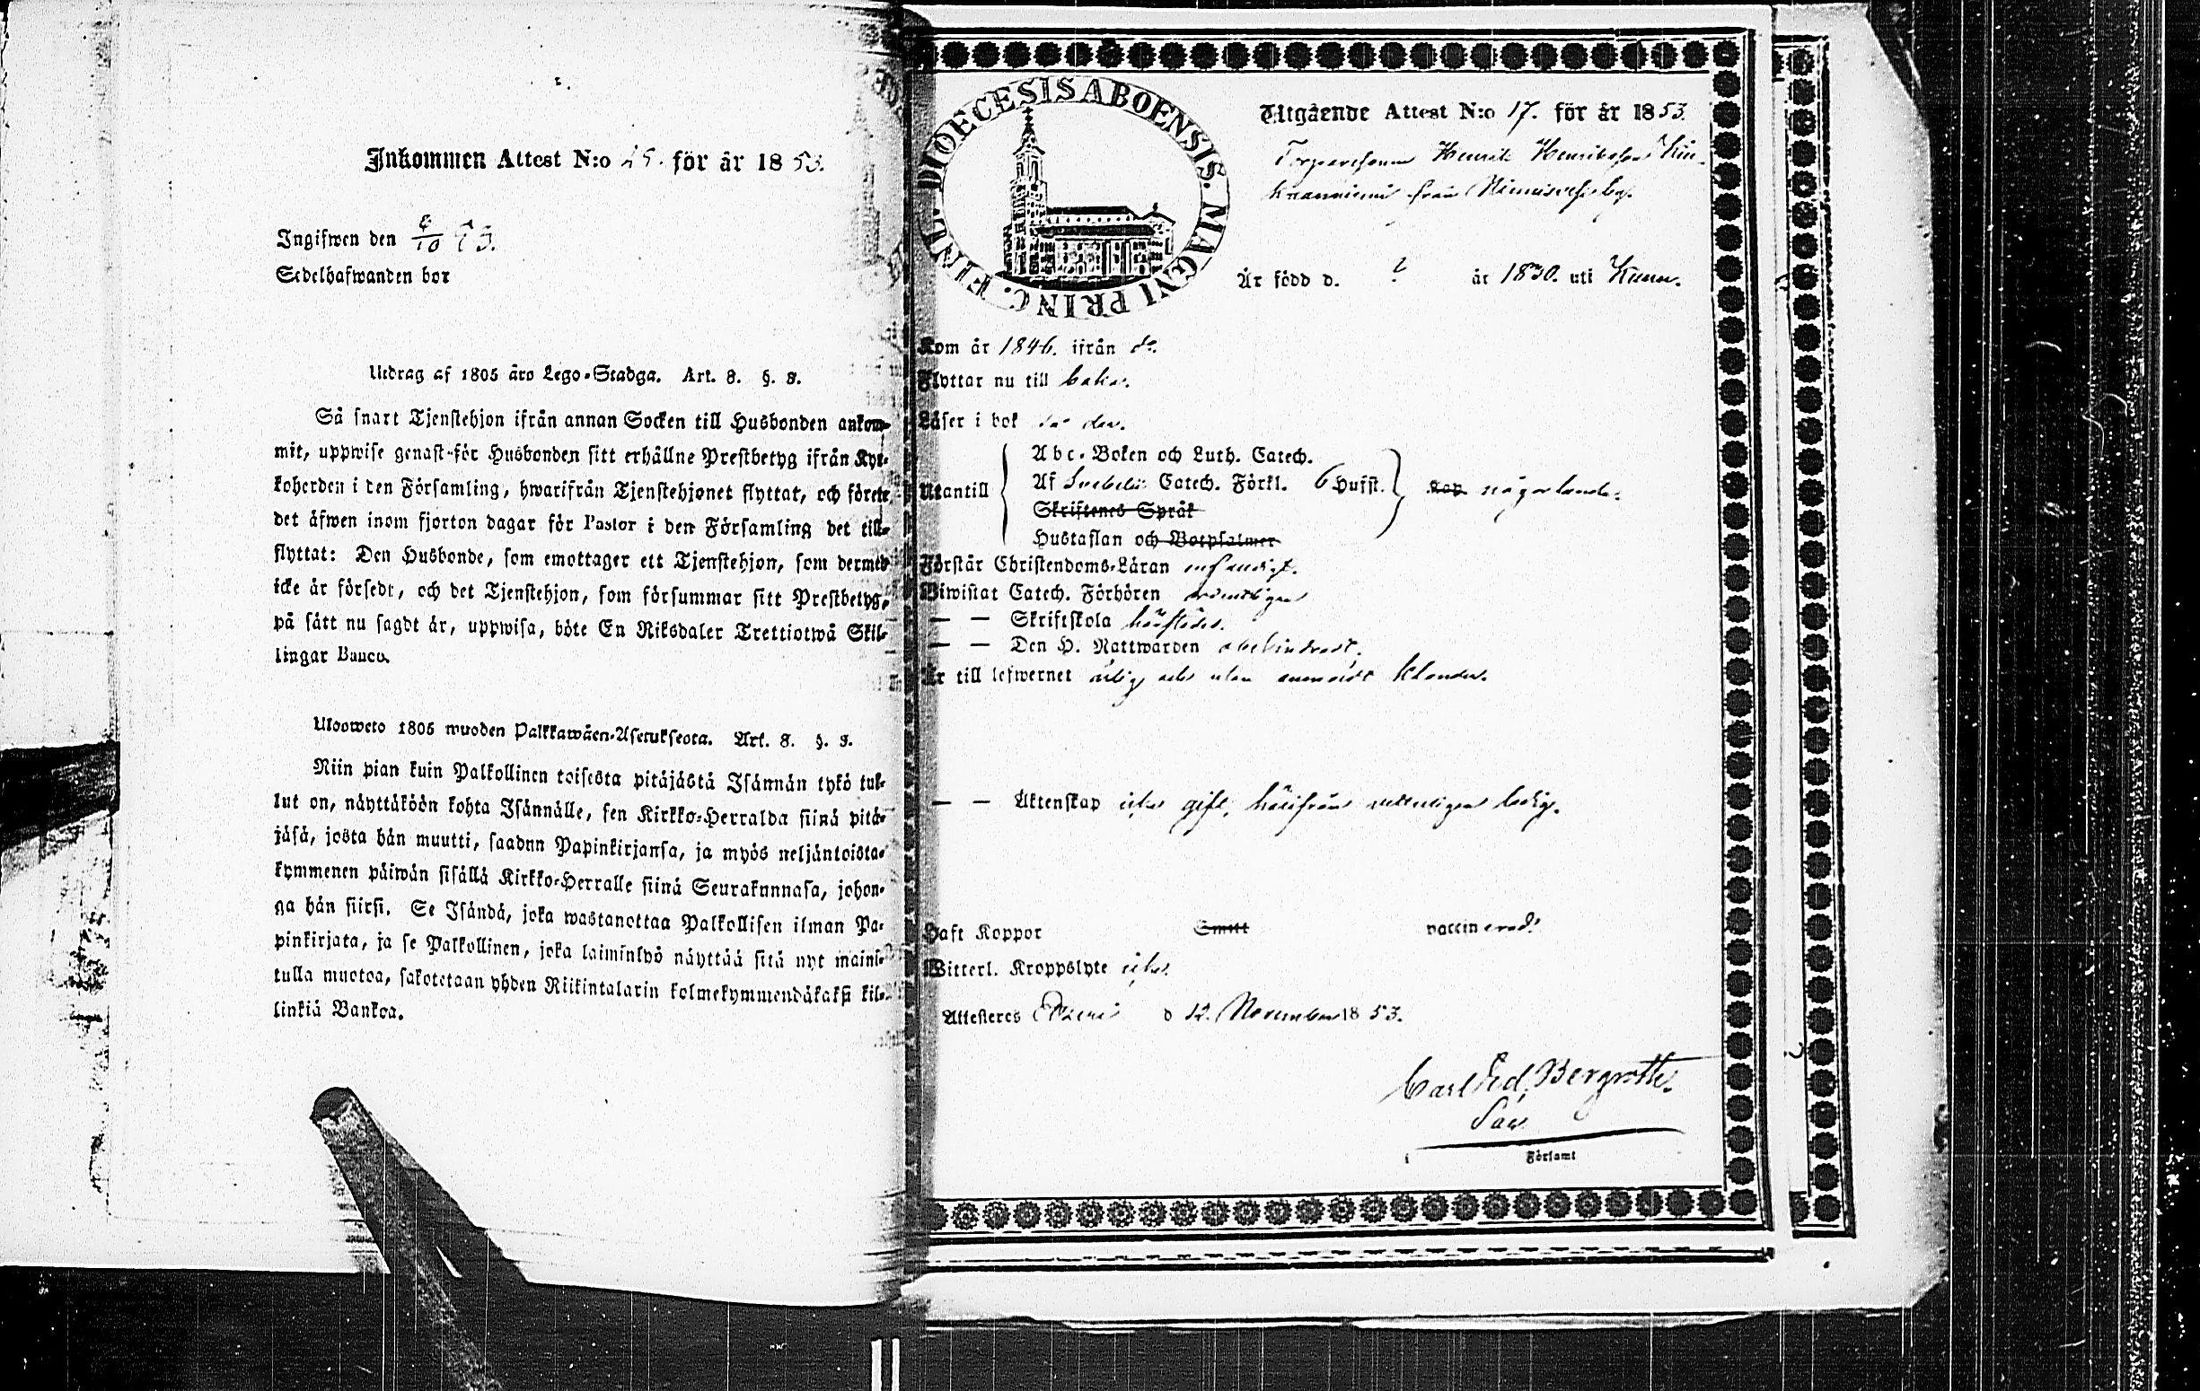 Inkommen Attest N:o 25. för år 1853.
Ingifwen den 8/10 53.
Sedelhafwanden bor
Utdrag af 1805 års Lego-Stadga. Art. 8. §. 3.
Så snart Tjenstehjon ifrån annan Socken till Husbonden ankom-
mit, uppwise genast för Husbonden sitt erhållne Prestbetyg ifrån Kyr-
koherden i den Församling, hwarifrån Tjenstehjonet flyttat, och förete
det äfwen inom fjorton dagar för Pastor i den Församling det till-
flyttat: Den Husbonde, som emottager ett Tjenstehjon, som dermed
icke är försedt, och det Tjenstehjon, som försummar sitt Prestbetyg,
på sätt nu sagdt är, uppwisa, böte En Riksdaler Trettiotwå Skil-
lingar Banco.
Ulosweto 1805 wuoden Palkkawäen-Asetuksesta. Art. 8. §. 3.
Niin pian kuin Palkollinen toisesta pitäjästä Isännän tykö tul-
lut on, näyttäköön kohta Isännälle, sen Kirkko-Herralda siinä pitä-
jäsä, josta hän muutti, saadun Papinkirjansa, ja myös neljäntoista-
kymmenen päiwän sisällä Kirkko-Herralle siinä Seurakunnasa, johon-
ga hän siirsi. Se Isändä, joka wastanottaa Palkollisen ilman Pa-
pinkirjata, ja se Palkollinen, joka laiminlyö näyttää sitä nyt maini-
tulla muotoa, sakotetaan yhden Riikintalarin kolmekymmendäkaksi kil-
linkiä Bankoa.
DIOECESIS ABOENSIS. MAGNI PRINC. FINL.
Utgående Attest N:o 17. för år 1853
Torparesonen Henrik Henriksson
från
Är född d. ? år 1830. uti
Kom år 1846. ifrån do.
Flyttar nu till
Läser i bok
Abc-Boken och Luth. Catech.
Utantill Af Svebelii Catech. Förkl. 6 Hufst. någorlunda.
Skriftenes Språk
Hustaflan och Botpsalmer
Förstår Christendoms-Läran enfaldigt.
Biwistat Catech. Förhören ordentligen
— — Skriftskola
— — Den H. Nattwarden obehindradt.
Är till lefwernet ärlig och utan anmärkt klander.
— — Äktenskap icke gift, härifrån veterligen ledig.
Haft Koppor Smitt vaccinerad.
Witterl. Kroppslyte icke.
Attesteres d 12. November 1853.
Carl Ed. Bergroth.
Sac.
Församl